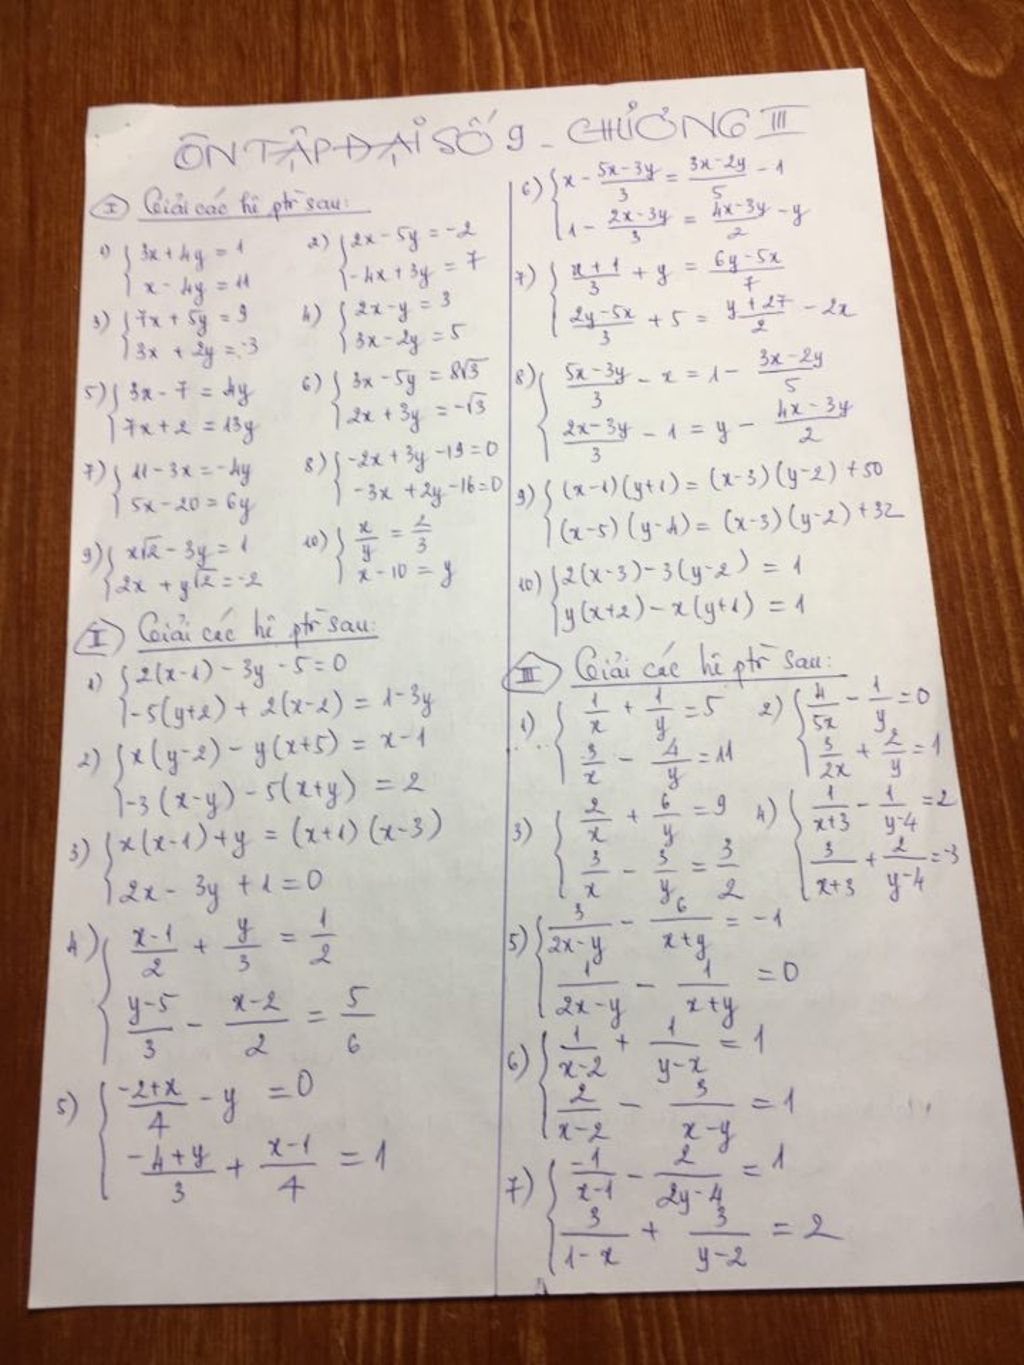 ÔN TẬP ĐẠI SỐ 9 - CHƯƠNG III
I) Giải các hệ ptr sau:
1) { 3x + 4y = 1
x - 4y = 11
2) { 2x - 5y = -2
-4x + 3y = 7
3) { 7x + 5y = 9
3x + 2y = -3
4) { 2x - y = 3
3x - 2y = 5
5) { 3x - 7 = 4y
7x + 2 = 13y
6) { 3x - 5y = 8√3
2x + 3y = -√3
7) { 11 - 3x = -4y
5x - 20 = 6y
8) { -2x + 3y - 19 = 0
-3x + 2y - 16 = 0
9) { x√2 - 3y = 1
2x + y√2 = -2
10) { x/y = 2/3
x - 10 = y
II) Giải các hệ ptr sau:
1) { 2(x-1) - 3y - 5 = 0
-5(y+2) + 2(x-2) = 1-3y
2) { x(y-2) - y(x+5) = x-1
-3(x-y) - 5(x+y) = 2
3) { x(x-1) + y = (x+1)(x-3)
2x - 3y + 1 = 0
4) { (x-1)/2 + y/3 = 1/2
(y-5)/3 - (x-2)/2 = 5/6
5) { (-2+x)/4 - y = 0
(-4+y)/3 + (x-1)/4 = 1
6) { x - (5x-3y)/3 = (3x-2y)/5 - 1
1 - (2x-3y)/3 = (4x-3y)/2 - y
7) { (x+1)/3 + y = (6y-5x)/7
(2y-5x)/3 + 5 = (y+27)/2 - 2x
8) { (5x-3y)/3 - x = 1 - (3x-2y)/5
(2x-3y)/3 - 1 = y - (4x-3y)/2
9) { (x-1)(y+1) = (x-3)(y-2) + 50
(x-5)(y-4) = (x-3)(y-2) + 32
10) { 2(x-3) - 3(y-2) = 1
y(x+2) - x(y+1) = 1
III) Giải các hệ ptr sau:
1) { 1/x + 1/y = 5
3/x - 4/y = 11
2) { 4/5x - 1/y = 0
3/2x + 2/y = 1
3) { 2/x + 6/y = 9
3/x - 3/y = 3/2
4) { 1/(x+3) - 1/(y-4) = 2
3/(x+3) + 2/(y-4) = -3
5) { 3/(2x-y) - 6/(x+y) = -1
1/(2x-y) - 1/(x+y) = 0
6) { 1/(x-2) + 1/(y-x) = 1
2/(x-2) - 3/(x-y) = 1
7) { -1/(x-1) - 2/(2y-4) = 1
3/(1-x) + 3/(y-2) = 2